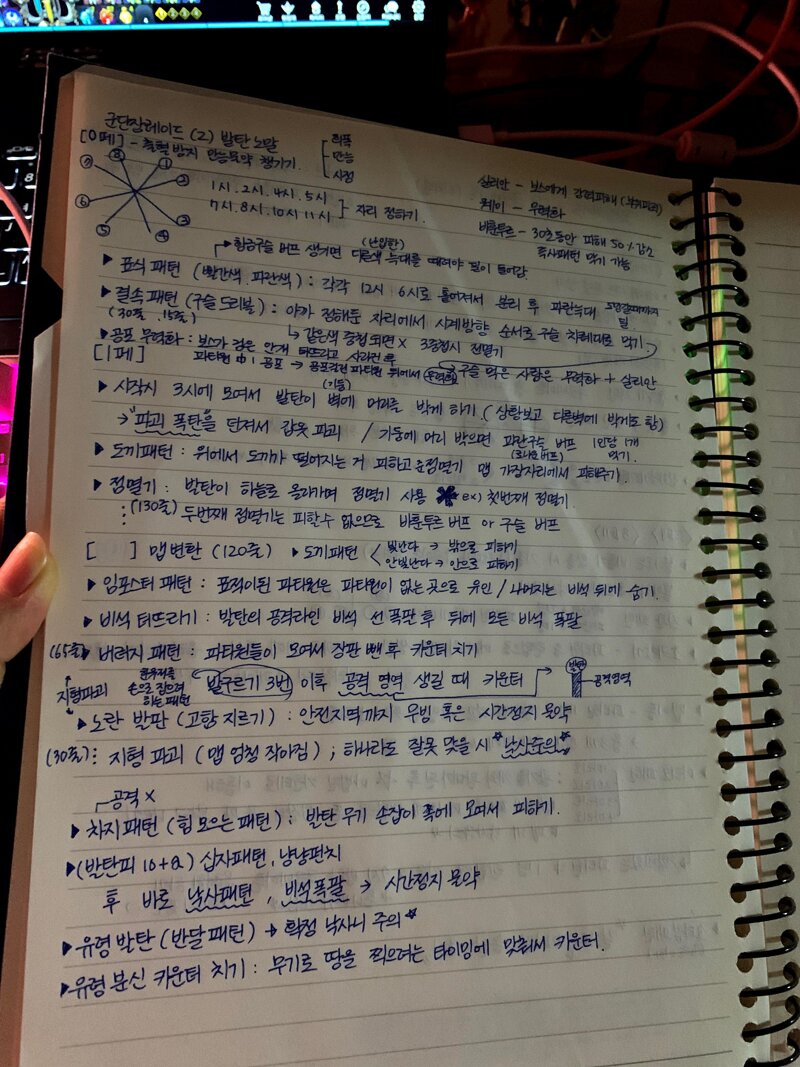 군단장레이드 (2) 발탄 노말
[0페] - 출혈 방지 만능물약 챙기기.
회폭
만능
시정
① ② ③ ④ ⑤ ⑥ ⑦ ⑧
1시. 2시. 4시. 5시
7시. 8시. 10시 11시 } 자리 정하기.
실리안 - 보스에게 강력피해 (부위파괴)
웨이 - 무력화
바훈투르 - 30초동안 피해 50% 감소
즉사패턴 막기 가능
황금구슬 버프 생기면 (난입한) 다른색 늑대를 때려야 딜이 들어감
▶ 표식 패턴 (빨간색. 파란색) : 각각 12시 6시로 흩어져서 분리 후 파란늑대
▶ 결속 패턴 (구슬 드리블) : 아까 정해둔 자리에서 시계방향 순서로 구슬 차례대로 먹기
(30줄, 15줄)
같은색 중첩되면 X 3중첩시 전멸기
▶ 공포 무력화 : 보스가 검은 안개 터뜨리고 사라진 후
파티원 中 1 공포 → 공포걸린 파티원 뒤에서
구슬 먹은 사람은 무력화 + 실리안
[1페]
▶ 시작시 3시에 모여서 발탄이 벽에 머리를 박게 하기 (상황보고 다른벽에 박게도 함)
(기둥)
→ "파괴 폭탄"을 던져서 갑옷 파괴 / 기둥에 머리 박으면 파란구슬 버프 1인당 1개 먹기.
▶ 도끼패턴 : 위에서 도끼가 떨어지는 거 피하고 맵 가장자리에서 피해주기.
▶ 전멸기 : 발탄이 하늘로 올라가며 전멸기 사용 ex) 첫번째 전멸기.
(130줄) 두번째 전멸기는 피할수 없으므로 바훈투르 버프 or 구슬 버프
[ ] 맵변환 (120줄) ▶ 도끼패턴
빛난다 → 밖으로 피하기
안빛난다 → 안으로 피하기
▶ 임포스터 패턴 : 표적이된 파티원은 파티원이 없는 곳으로 유인 / 나머지는 비석 뒤에 숨기.
▶ 비석 터뜨리기 : 발탄의 공격라인 비석 선 폭파 후 뒤에 모든 비석 폭팔
(65줄) ▶ 버러지 패턴 : 파티원들이 모여서 장판 뺀 후 카운터 치기
지형파괴
손으로 잡으려 하는 패턴
발구르기 3번 이후 공격 영역 생길 때 카운터
발탄
공격영역
▶ 노란 발판 (고함 지르기) : 안전지역까지 무빙 혹은 시간정지 물약
(30줄) : 지형 파괴 (맵 엄청 작아짐) ; 하나라도 잘못 맞을 시 *낙사주의*
공격 X
▶ 차지패턴 (힘 모으는 패턴) : 발탄 무기 손잡이 쪽에 모여서 피하기.
▶ (발탄피 10+a) 십자패턴, 냥냥펀치
후 바로 낙사패턴, 비석폭팔 → 시간정지 물약
▶ 유령 발탄 (반달 패턴) → 확정 낙사니 주의*
▶ 유령 분신 카운터 치기 : 무기로 땅을 찍으려는 타이밍에 맞춰서 카운터.